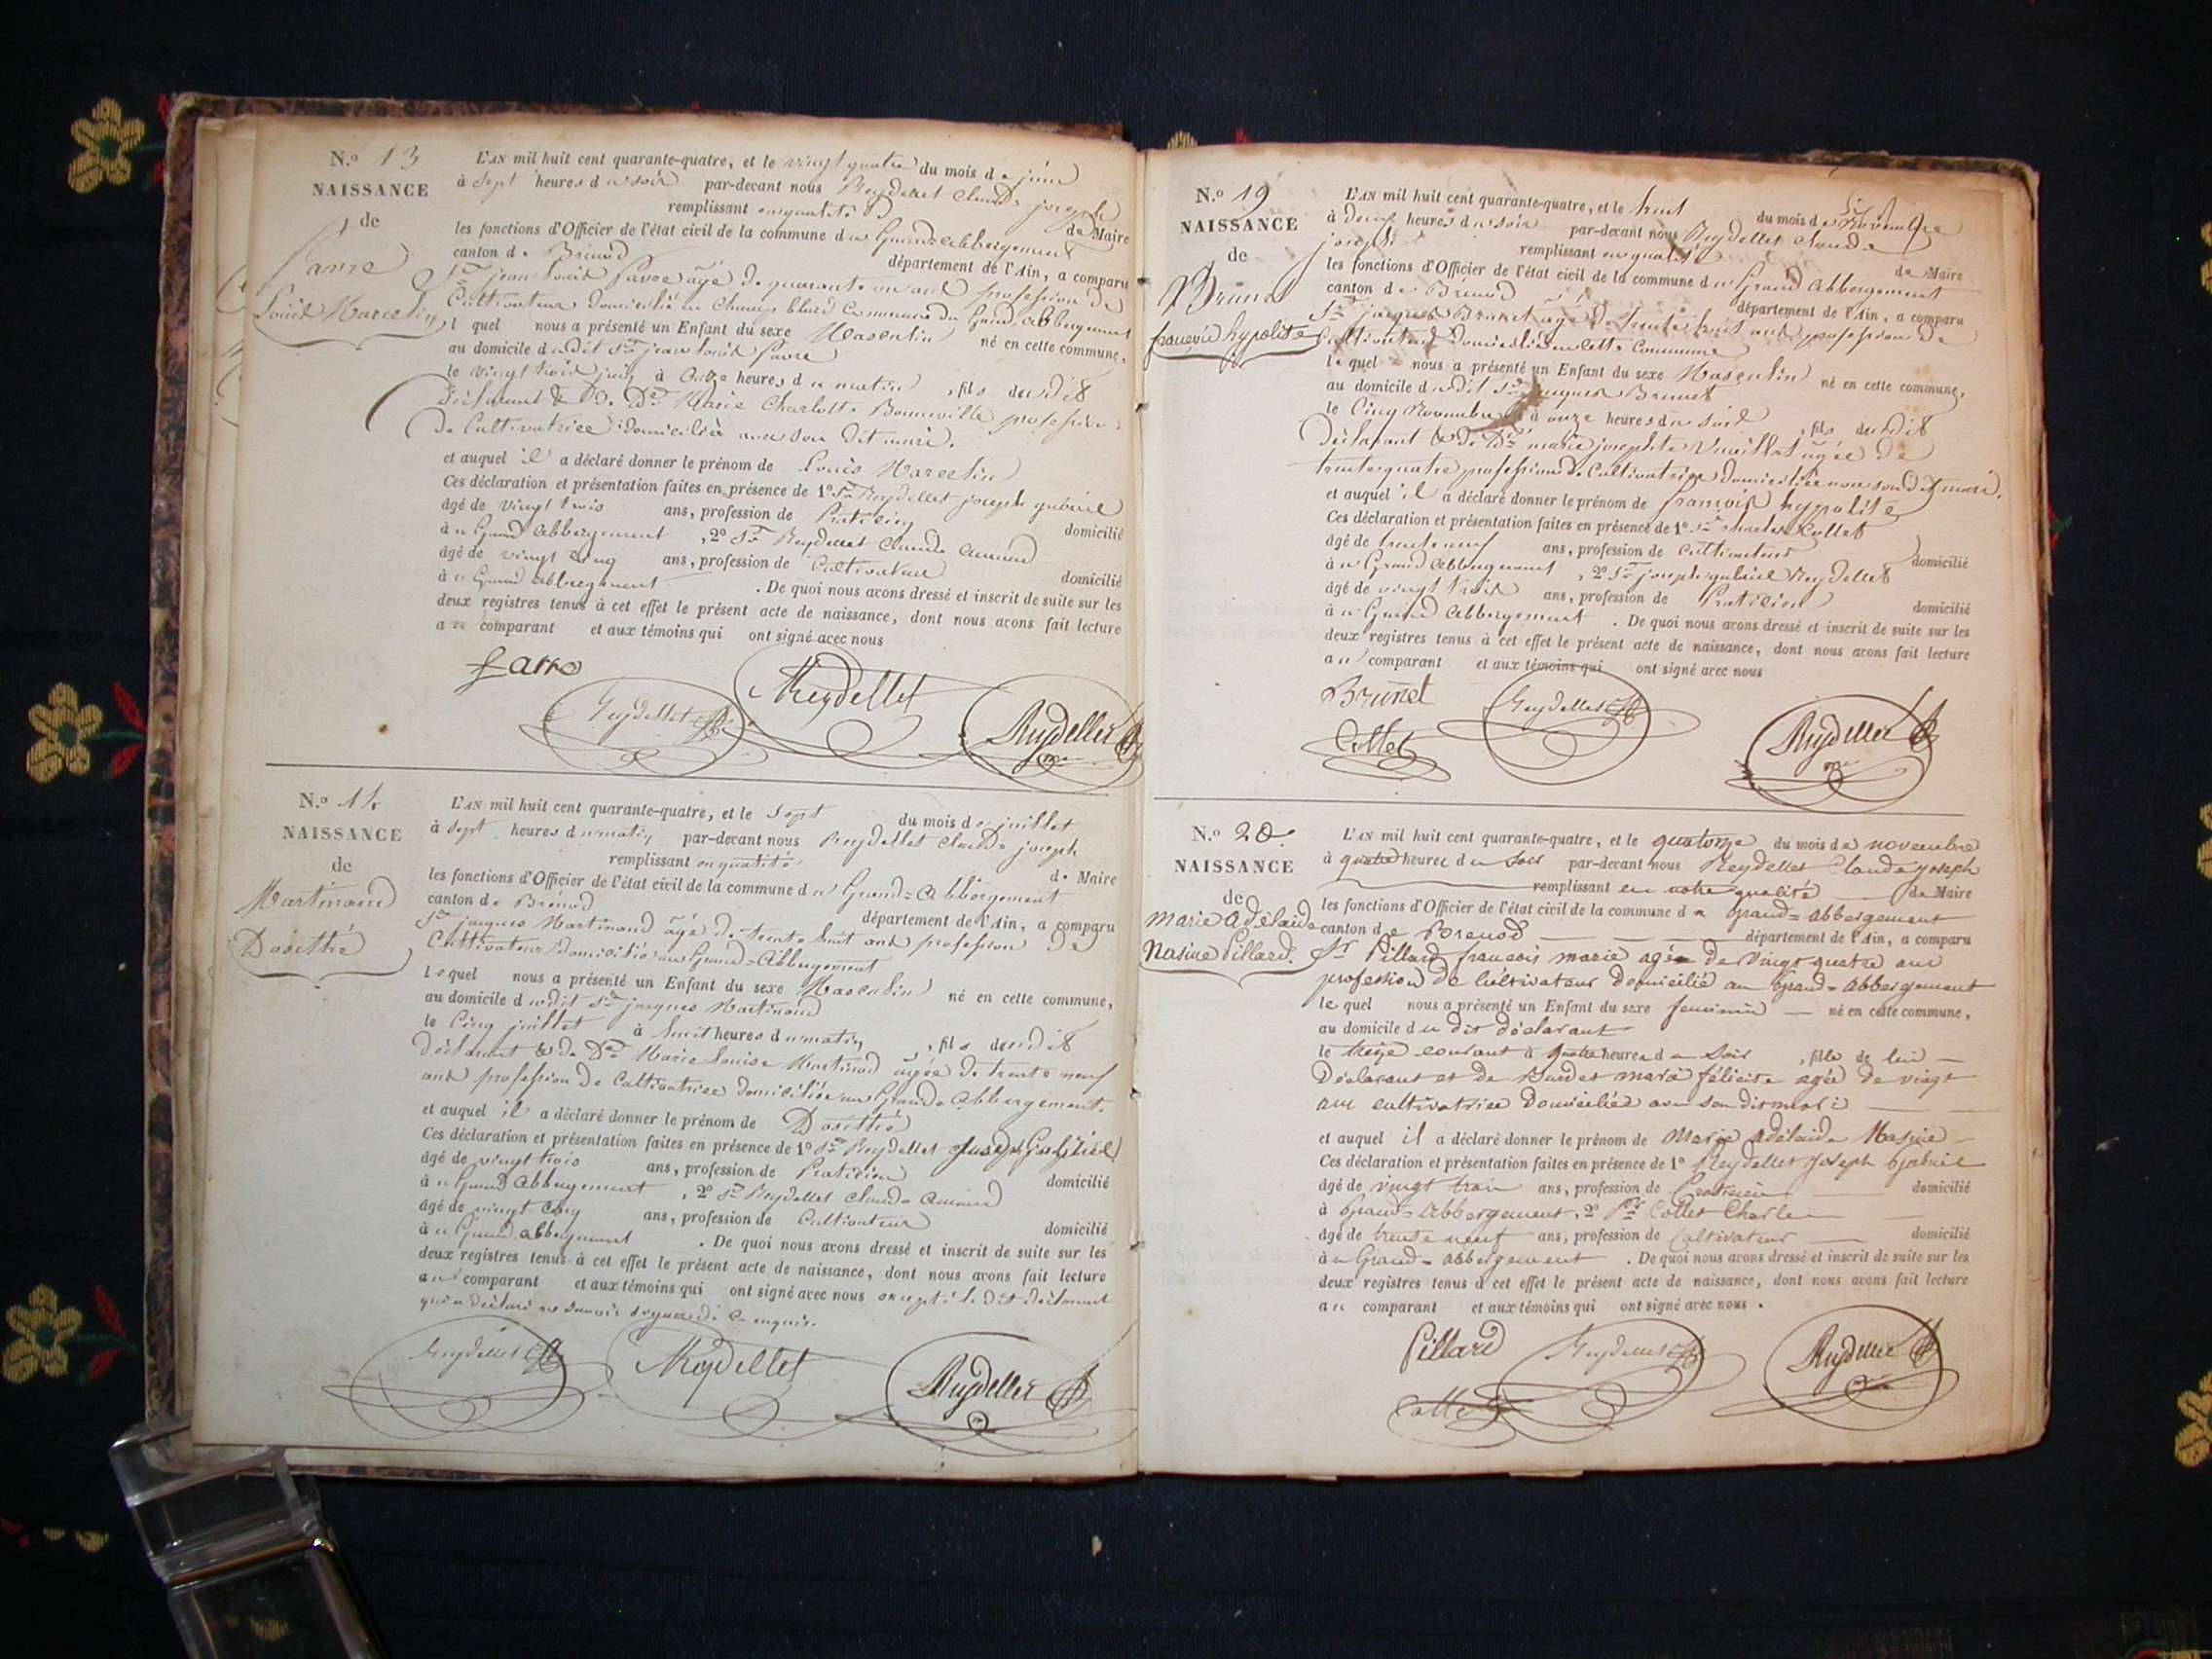 N.º 13
NAISSANCE
de
Favre
Louis Marcelin
L'AN mil huit cent quarante-quatre, et le vingt quatre du mois de juin
à sept heures du soir par-devant nous Reydellet Claude joseph
remplissant en qualité de Maire
les fonctions d'Officier de l'état civil de la commune du Grand=Abbergement
canton de Brénod département de l'Ain, a comparu
Sr jean louis Favre âgé de quarante un ans profession de
Cultivateur domicilié en Champ blard Commune du Grand Abbergement
lequel nous a présenté un Enfant du sexe Masculin né en cette commune,
au domicile dudit Sr jean louis favre
le vingt trois juin à onze heures du matin , fils dudit
Déclarant & de De Marie Charlotte Bonneville profession
de Cultivatrice domiciliée avec son dit mari.
et auquel il a déclaré donner le prénom de Louis Marcelin
Ces déclaration et présentation faites en présence de 1º Sr Reydellet joseph gabriel
âgé de vingt trois ans, profession de Praticien domicilié
à u Grand Abbergement , 2º Sr Reydellet Claude Amand
âgé de vingt cinq ans, profession de Cultivateur domicilié
à u Grand Abbergement . De quoi nous avons dressé et inscrit de suite sur les
deux registres tenus à cet effet le présent acte de naissance, dont nous avons fait lecture
au comparant et aux témoins qui ont signé avec nous
favre
Reydellet Reydellet Reydellet
N.º 14
NAISSANCE
de
Martinand
Dosithé
L'AN mil huit cent quarante-quatre, et le sept du mois de juillet
à sept heures du matin par-devant nous Reydellet Claude joseph
remplissant en qualité de Maire
les fonctions d'Officier de l'état civil de la commune du Grand=Abbergement
canton de Brénod département de l'Ain, a comparu
Sr jacques Martinand âgé de trente huit ans profession de
Cultivateur domicilié au Grand=Abbergement
lequel nous a présenté un Enfant du sexe Masculin né en cette commune,
au domicile dudit Sr jacques Martinand
le Cinq juillet à huit heures du matin , fils dudit
déclarant & de De Marie louise Martinod âgée de trente neuf
ans profession de Cultivatrice domiciliée au Grand Abbergement.
et auquel il a déclaré donner le prénom de Dosithé
Ces déclaration et présentation faites en présence de 1º Sr Reydellet joseph Gabriel
âgé de vingt trois ans, profession de Praticien domicilié
à u Grand Abbergement , 2º Sr Reydellet Claude Amand
âgé de vingt cinq ans, profession de Cultivateur domicilié
à u Grand abbergement . De quoi nous avons dressé et inscrit de suite sur les
deux registres tenus à cet effet le présent acte de naissance, dont nous avons fait lecture
au comparant et aux témoins qui ont signé avec nous excepté le dit déclarant
qui a déclaré ne savoir signer de ce enquis.
Reydellet Reydellet Reydellet
N.º 19
NAISSANCE
de
Brunet
françois hypolite
L'AN mil huit cent quarante-quatre, et le huit du mois de Novembre
à deux heures du soir par-devant nous Reydellet Claude
joseph remplissant en qualité de Maire
les fonctions d'Officier de l'état civil de la commune du Grand Abbergement
canton de Brénod département de l'Ain, a comparu
Sr jacques Brunet âgé de trente huit ans profession de
Cultivateur domicilié en cette Commune
lequel nous a présenté un Enfant du sexe Masculin né en cette commune,
au domicile dudit Sr jacques Brunet
le Cinq Novembre à onze heures du soir , fils dudit
Déclarant & de De marie josephte Vuaillat âgée de
trente quatre profession de Cultivatrice domiciliée avec son dit mari.
et auquel il a déclaré donner le prénom de françois hypolite
Ces déclaration et présentation faites en présence de 1º Sr charles Collet
âgé de trente neuf ans, profession de Cultivateur domicilié
à u Grand Abbergement , 2º Sr joseph gabriel Reydellet
âgé de vingt trois ans, profession de Praticien domicilié
à u Grand Abbergement . De quoi nous avons dressé et inscrit de suite sur les
deux registres tenus à cet effet le présent acte de naissance, dont nous avons fait lecture
au comparant et aux témoins qui ont signé avec nous
Brunet Reydellet
Collet Reydellet
N.º 20.
NAISSANCE
de
Marie Adélaide
Nasine Pillard.
L'AN mil huit cent quarante-quatre, et le quatorze du mois de novembre
à quatre heures du soir par-devant nous Reydellet Claude Joseph
remplissant en notre qualité de Maire
les fonctions d'Officier de l'état civil de la commune du Grand=abbergement
canton de Brenod département de l'Ain, a comparu
Sr Pillard françois marie agé de vingt quatre ans
profession de cultivateur domicilié au Grand=abbergement
lequel nous a présenté un Enfant du sexe feminin né en cette commune,
au domicile du dit déclarant
le treize courant à quatre heures du soir , fille de lui
Déclarant et de Burdet marie félicite agée de vingt
ans cultivatrice domiciliée avec son dit mari
et auquel il a déclaré donner le prénom de Marie Adélaide Nasine
Ces déclaration et présentation faites en présence de 1º Reydellet Joseph Gabriel
âgé de vingt trois ans, profession de Praticien domicilié
à Grand=Abbergement, 2º Sr Collet Charles
âgé de trente neuf ans, profession de Cultivateur domicilié
à u Grand=abbergement . De quoi nous avons dressé et inscrit de suite sur les
deux registres tenus à cet effet le présent acte de naissance, dont nous avons fait lecture
au comparant et aux témoins qui ont signé avec nous .
Pillard Reydellet Reydellet
Collet